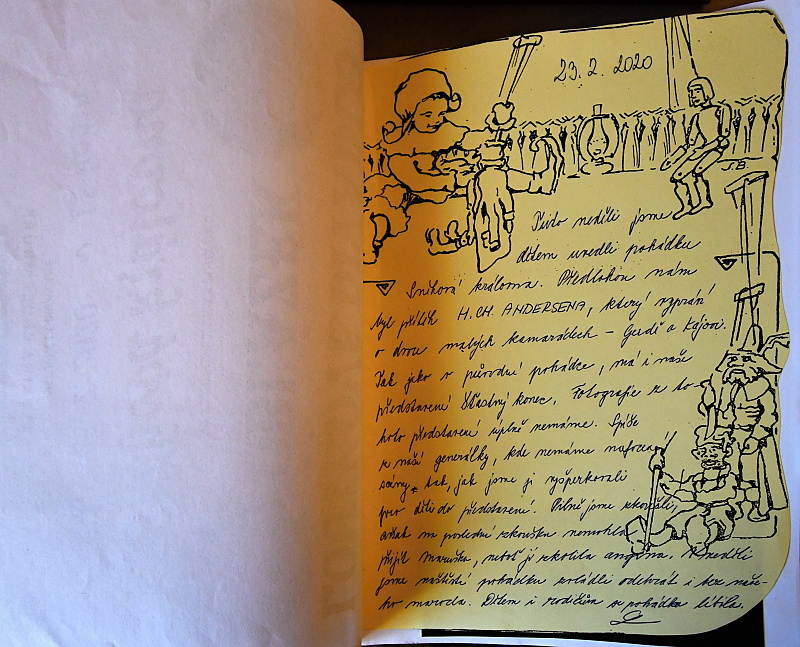 23. 2. 2020
J.B.
Tuto neděli jsme
dětem uvedli pohádku
Sněhová královna. Předlohou nám
byl příběh H. CH. ANDERSENA, který vypráví
o dvou malých kamarádech – Gerdě a Kájovi.
Tak jako v původní pohádce, má i naše
představení šťastný konec. Fotografie z to-
hoto představení úplně nemáme. Spíše
z naší generálky, kde nemáme nafocenou
scénu tak, jak jsme ji vyšperkovali
pro děti do představení. Pilně jsme zkoušeli,
avšak na poslední zkoušku nemohla
přijít Maruška, neboť ji skolila angína. V neděli
jsme naštěstí pohádku zvládli odehrát i bez naše-
ho maroda. Dětem i rodičům se pohádka líbila.